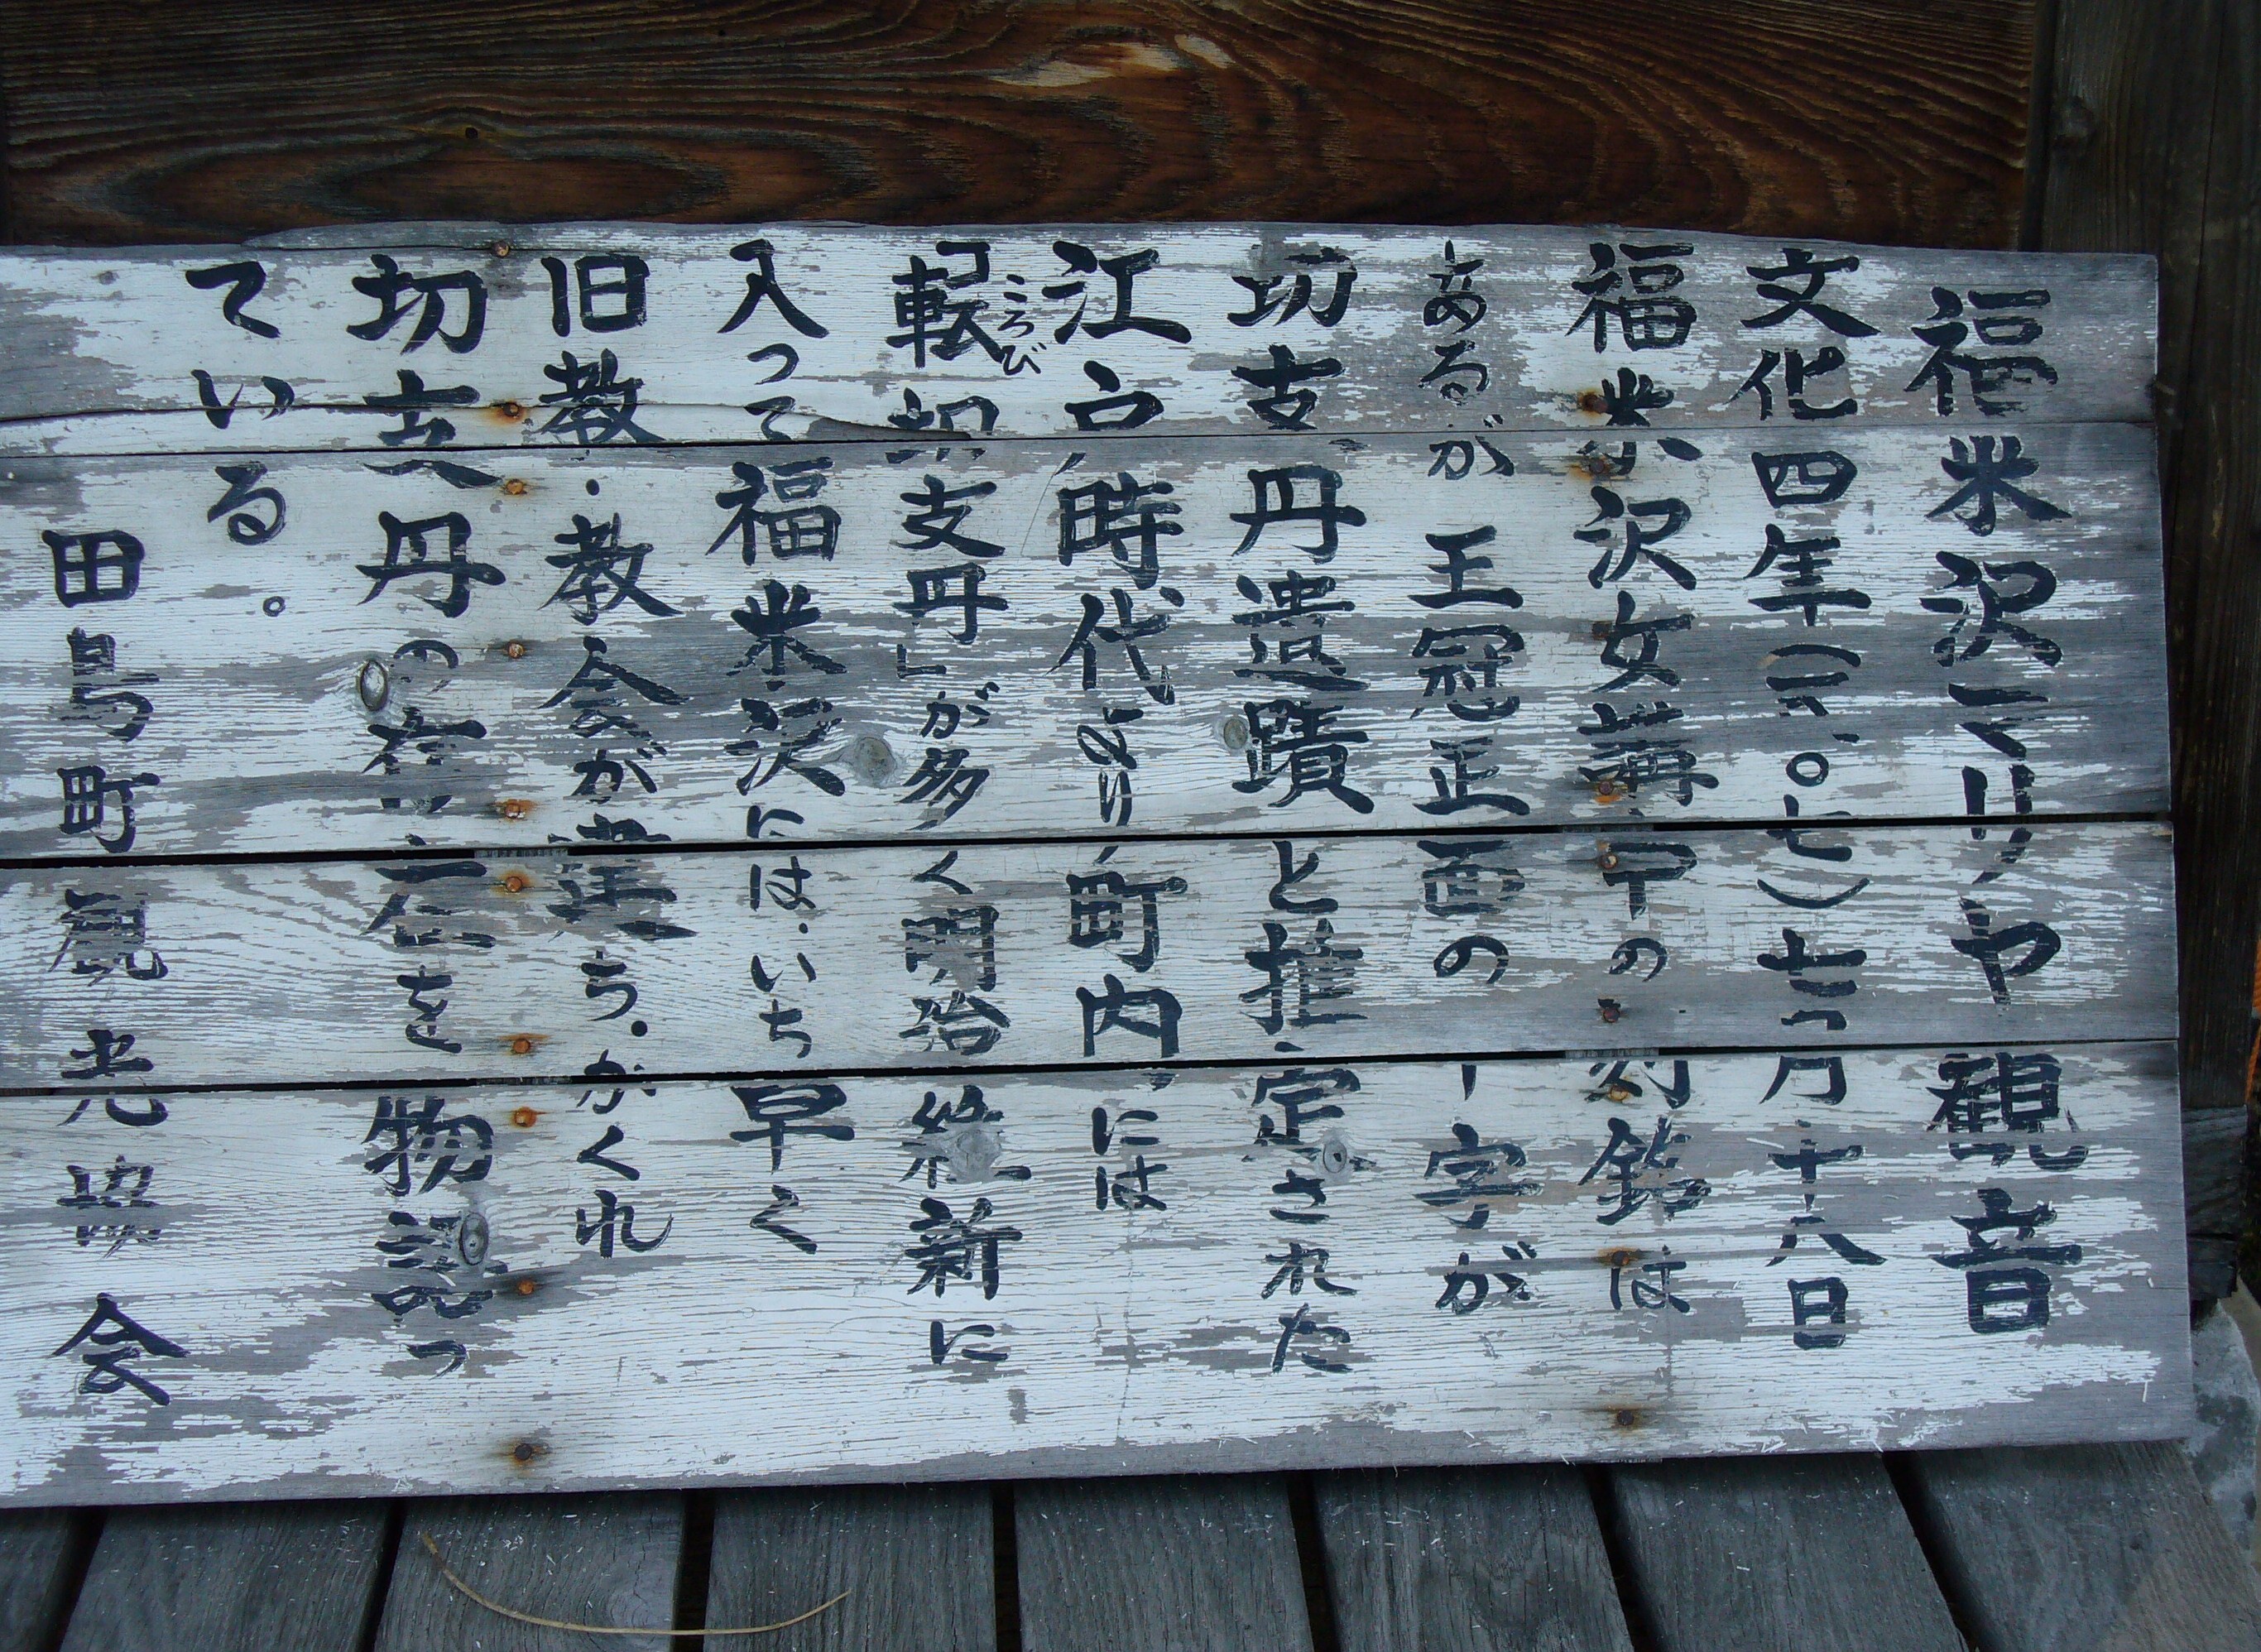 福米沢マリヤ観音
文化四年(一八〇七)七月十八日
福米沢女講中の刻銘は
あるが 王冠正面の十字が
切支丹遺蹟と推定された
江戸時代より町内には
ころび
「転切支丹」が多く明治維新に
入って福米沢にはいち早く
旧教・教会が建ち・かくれ
切支丹の存在を物語っ
ている。
田島町観光協会